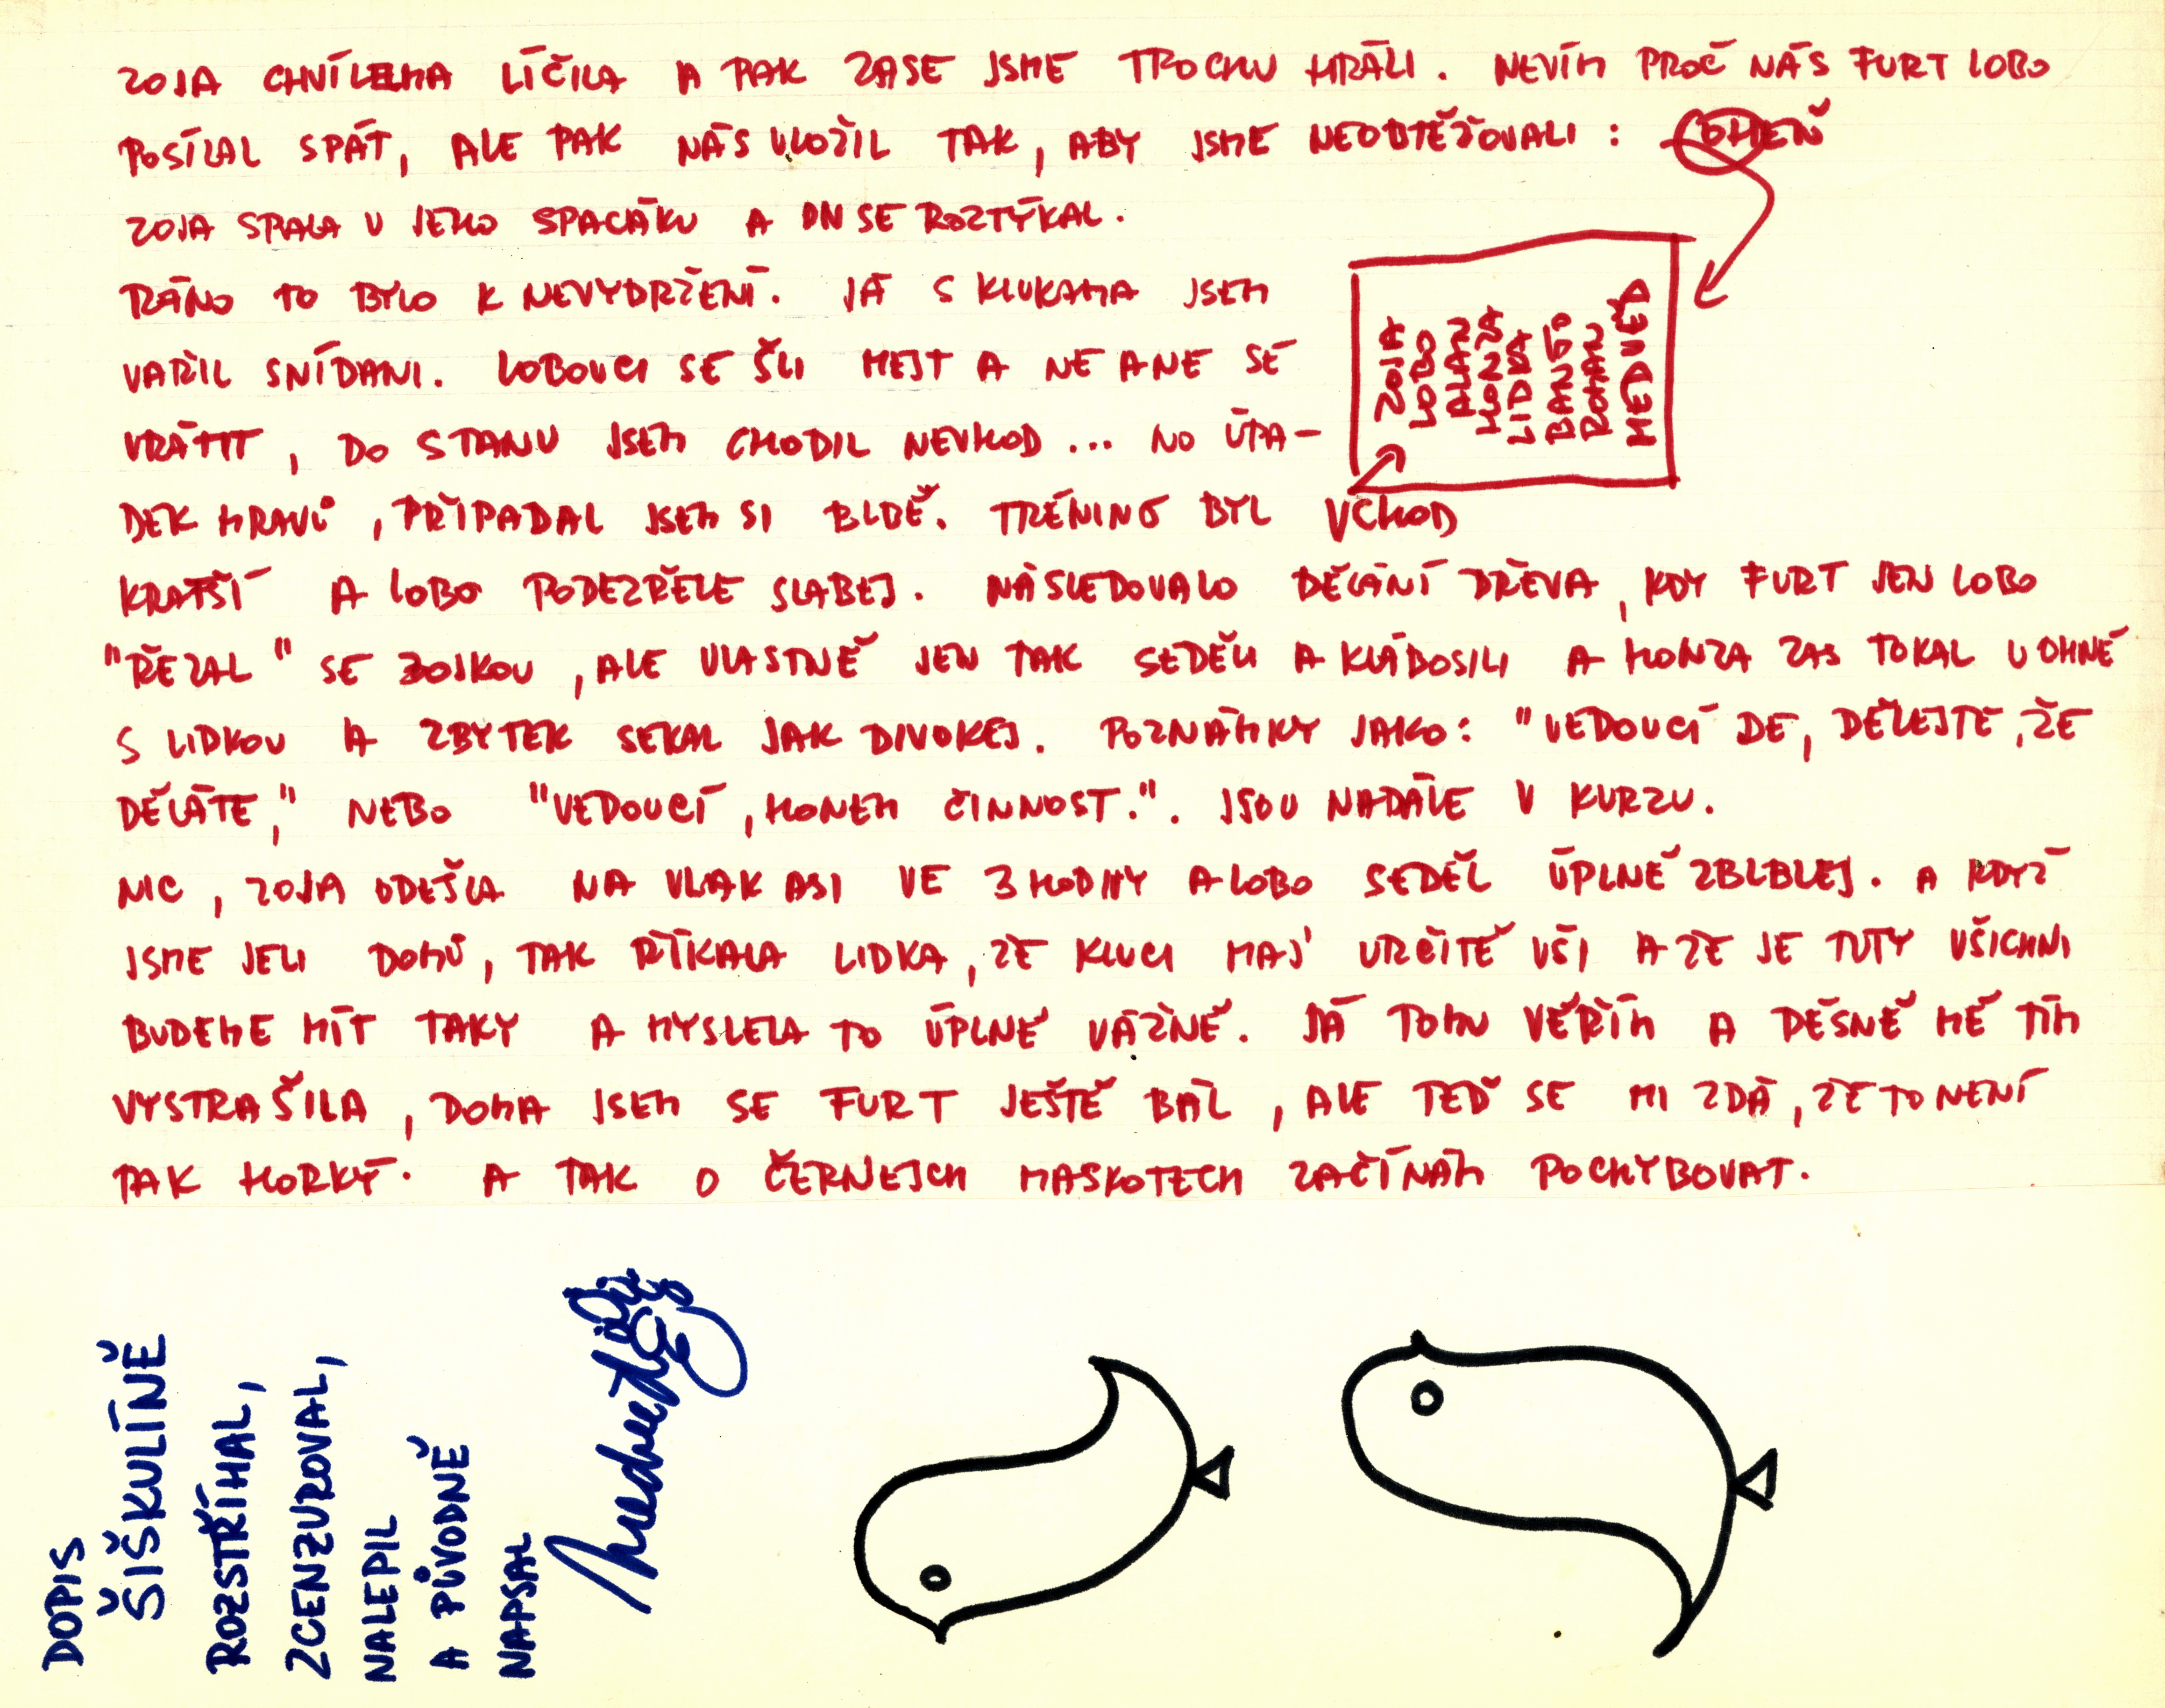 ZOJA CHVÍLEMA LÍČILA A PAK ZASE JSME TROCHU HRÁLI. NEVÍM PROČ NÁS FURT LOBO
POSÍLAL SPÁT, ALE PAK NÁS ULOŽIL TAK, ABY JSME NEOBTĚŽOVALI :
ZOJA SPALA V JEHO SPACÁKU A ON SE ROZTÝKAL.
RÁNO TO BYLO K NEVYDRŽENÍ. JÁ S KLUKAMA JSEM
VAŘIL SNÍDANI. LOBOUCI SE ŠLI MEJT A NE A NE SE
VRÁTIT, DO STANU JSEM CHODIL NEVHOD... NO ÚPA-
DEK MRAVŮ, PŘIPADAL JSEM SI BLBĚ. TRÉNING BYL
KRATŠÍ A LOBO PODEZŘELE SLABEJ. NÁSLEDOVALO DĚLÁNÍ DŘEVA, KDY FURT JEN LOBO
"ŘEZAL" SE ZOJKOU, ALE VLASTNĚ JEN TAK SEDĚLI A KLÁBOSILI A HONZA ZAS TOKAL U OHNĚ
S LIDKOU A ZBYTEK SEKAL JAK DIVOKEJ. POZNÁMKY JAKO: "VEDOUCÍ DE, DĚLEJTE, ŽE
DĚLÁTE," NEBO "VEDOUCÍ, HONEM ČINNOST.". JSOU NADÁLE V KURZU.
NIC, ZOJA ODEŠLA NA VLAK ASI VE 3 HODINY A LOBO SEDĚL ÚPLNĚ ZBLBLEJ. A KDYŽ
JSME JELI DOMŮ, TAK ŘÍKALA LIDKA, ŽE KLUCI MAJ' URČITĚ VŠI A ŽE JE TUTY VŠICHNI
BUDEME MÍT TAKY A MYSLELA TO ÚPLNĚ VÁŽNĚ. JÁ TOMU VĚŘÍM A DĚSNĚ MĚ TÍM
VYSTRAŠILA, DOMA JSEM SE FURT JEŠTĚ BÁL, ALE TEĎ SE MI ZDÁ, ŽE TO NENÍ
TAK HORKÝ. A TAK O ČERNEJCH MASKOTECH ZAČÍNÁM POCHYBOVAT.
ZOJA
LOBO
HONZA
LIDKA
ROMAN
MEDVĚD
VCHOD
DOPIS
ŠIŠKULÍNĚ
ROZSTŘÍHAL,
ZCENZUROVAL,
NALEPIL
A PŮVODNĚ
NAPSAL